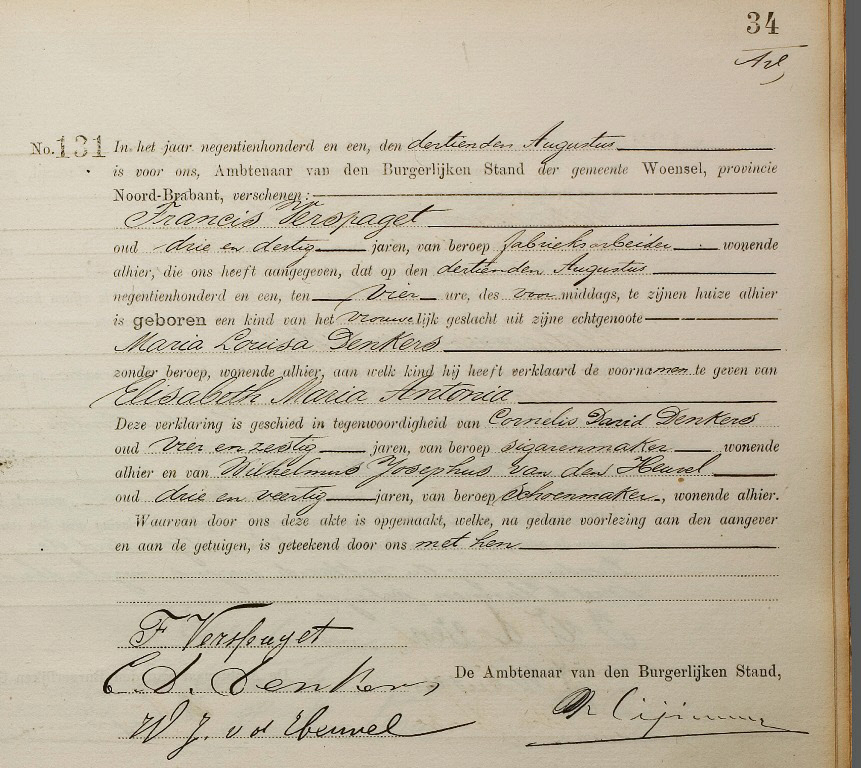 34
No. 131 In het jaar negentienhonderd en een, den dertienden Augustus
is voor ons, Ambtenaar van den Burgerlijken Stand der gemeente Woensel, provincie
Noord-Brabant, verschenen:
Francis Verspaget
oud drie en dertig jaren, van beroep fabrieksarbeider wonende
alhier, die ons heeft aangegeven, dat op den dertienden Augustus
negentienhonderd en een, ten vier ure, des voormiddags, te zijnen huize alhier
is geboren een kind van het vrouwelijk geslacht uit zijne echtgenoote
Maria Louisa Denkers
zonder beroep, wonende alhier, aan welk kind hij heeft verklaard de voornamen te geven van
Elisabeth Maria Antonia
Deze verklaring is geschied in tegenwoordigheid van Cornelis David Denkers
oud vier en zestig jaren, van beroep sigarenmaker wonende
alhier en van Wilhelmus Josephus van den Heuvel
oud drie en veertig jaren, van beroep schoenmaker, wonende alhier.
Waarvan door ons deze akte is opgemaakt, welke, na gedane voorlezing aan den aangever
en aan de getuigen, is geteekend door ons met hen
F Verspaget
C. D. Denkers
De Ambtenaar van den Burgerlijken Stand,
W J. v d Heuvel